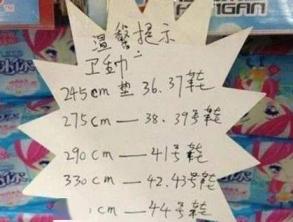 温馨提示
卫动
245cm 垫 36.37号鞋
275cm — 38.39号鞋
290cm — 41号鞋
330cm — 42.43号鞋
cm — 44号鞋